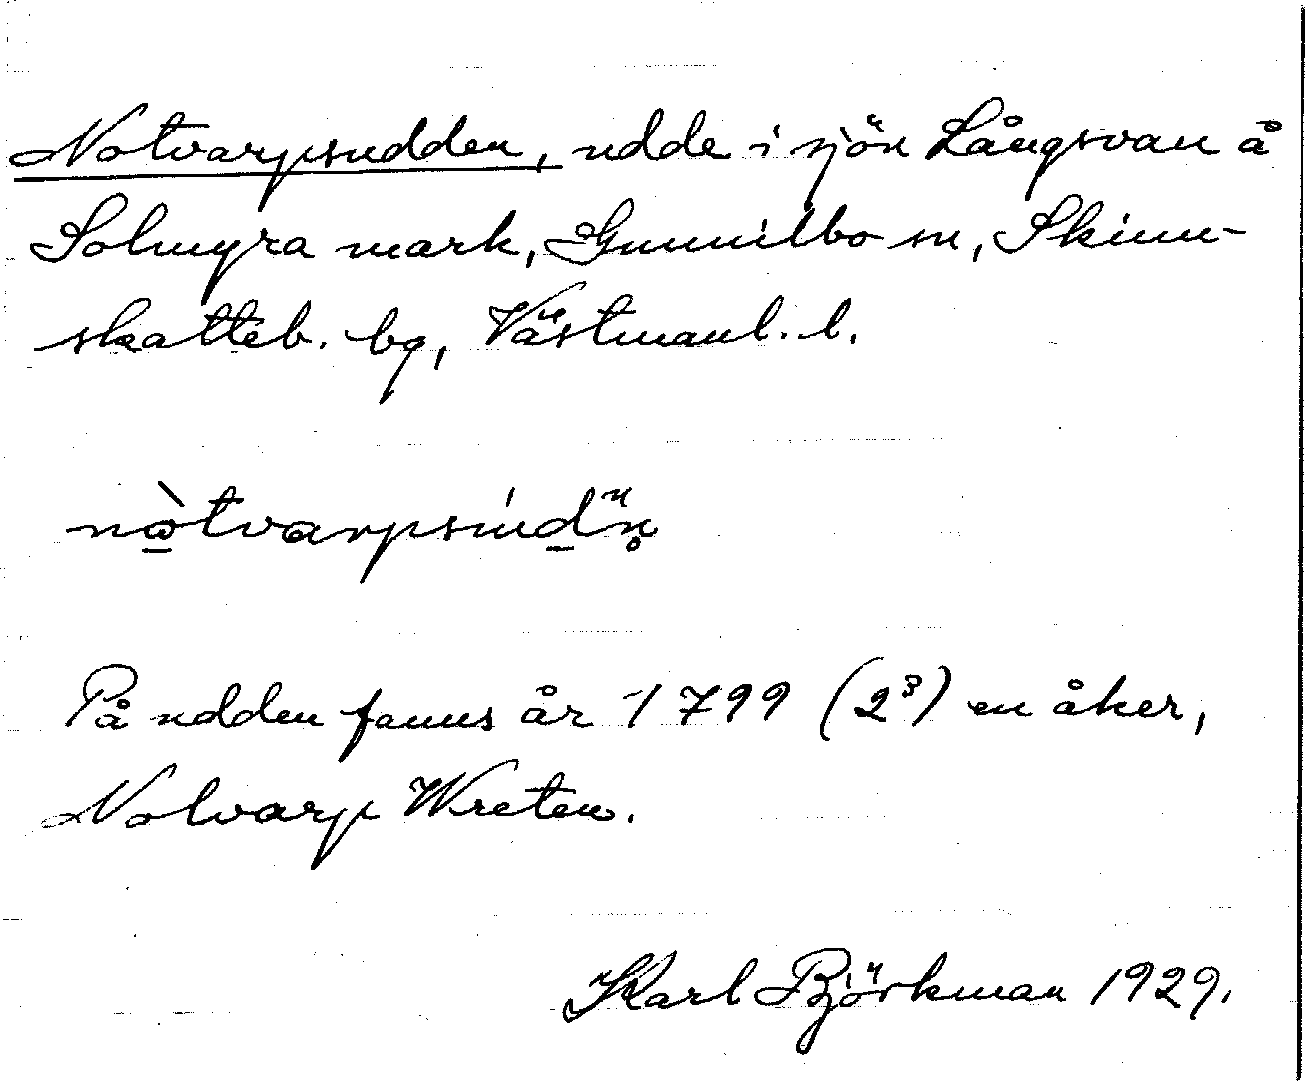 Notvarpsudden, udde i sjön Långsvan å
Solmyra mark, Gunnilbo sn, Skinn-
skatteb. bg, Västmanl. l.
nòtvarpsúdn̥
På udden fanns år 1799 (2³) en åker,
Notvarp Wreten.
Karl Björkman 1929.